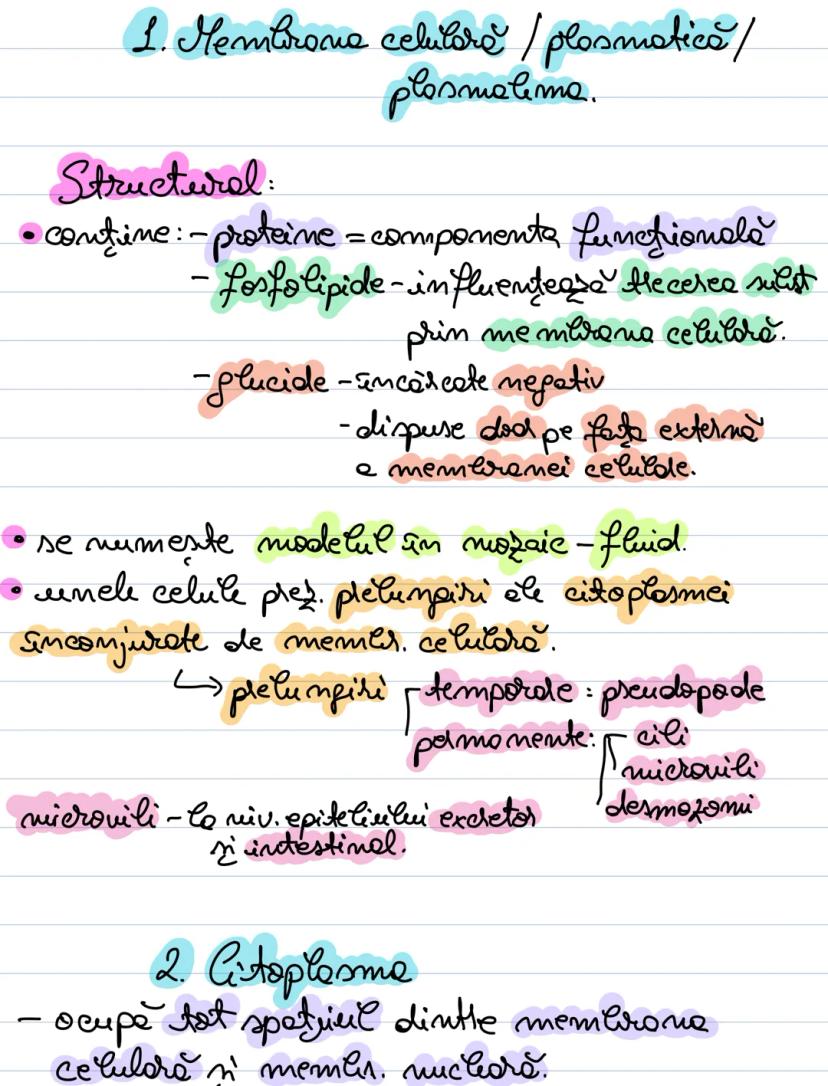 1. Membrana celulară / plasmatică /
plasmalema.
Structural:
• conține: - proteine = componenta funcțională
- fosfolipide - influențează trecerea subst
prin membrana celulară.
- glucide - încărcate negativ
- dispuse doar pe fața externă
a membranei celulale.
• se numește modelul în mozaic - fluid.
• unele celule prez. prelungiri ale citoplasmei
înconjurate de membr. celulară.
↳ prelungiri - temporare : pseudopode
permanente: - cili
microvili
desmozomi
microvili - la niv. epiteliului excretor
și intestinal.
2. Citoplasma
- ocupă tot spațiul dintre membrana
celulară și membr. nucleară.